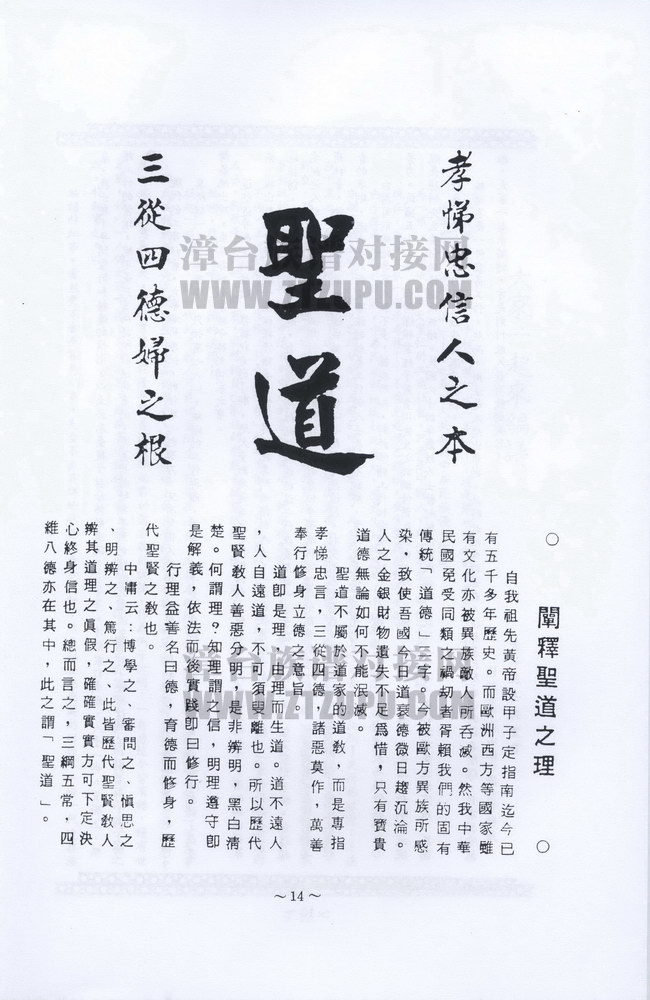 孝悌忠信人之本
聖道
三從四德婦之根
漳台族谱对接网
WWW.ZTZUPU.COM
○ 闡釋聖道之理 ○
自我祖先黃帝設甲子定指南迄今已
有五千多年歷史。而歐洲西方等國家雖
有文化亦被異族敵人所吞滅。然我中華
民國免受同類之禍刼者胥賴我們的固有
傳統「道德」二字。今被歐方異族所感
染,致使吾國今日道衰德微日趨沉淪。
人之金銀財物遺失不足爲惜,只有寶貴
道德無論如何不能泯滅。
聖道不屬於道家的道教,而是專指
孝悌忠言,三從四德,諸惡莫作,萬善
奉行修身立德之意旨。
道卽是理,由理而生道。道不遠人
,人自遠道,不可須臾離也。所以歷代
聖賢教人善惡分明,是非辨明,黑白清
楚。何謂理?知理謂之信,明理遵守卽
是解義,依法而後實踐卽曰修行。
行理益善名曰德,育德而修身,歷
代聖賢之教也。
中庸云:博學之、審問之、愼思之
、明辨之、篤行之、此皆歷代聖賢教人
辨其道理之眞假,確確實實方可下定決
心終身信也。總而言之,三綱五常,四
維八德亦在其中,此之謂「聖道」。
漳台族谱对接网
WWW.ZTZUPU.COM
~14~